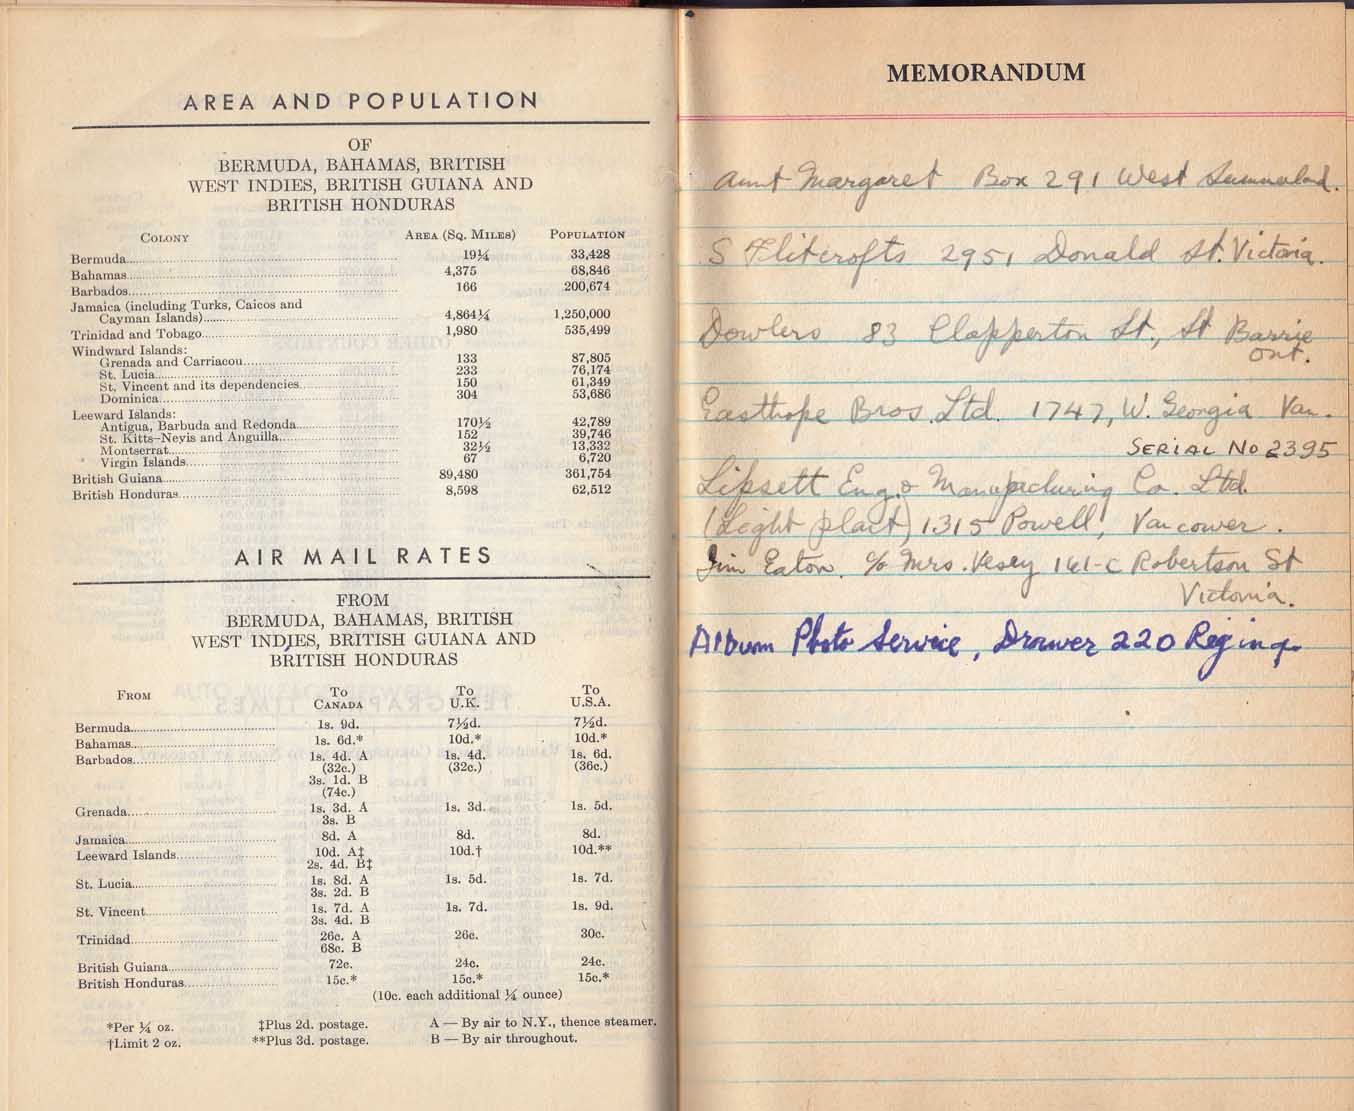 AREA AND POPULATION
OF
BERMUDA, BAHAMAS, BRITISH
WEST INDIES, BRITISH GUIANA AND
BRITISH HONDURAS
COLONY AREA (SQ. MILES) POPULATION
Bermuda 19¼ 33,428
Bahamas 4,375 68,846
Barbados 166 200,674
Jamaica (including Turks, Caicos and
Cayman Islands) 4,864¼ 1,250,000
Trinidad and Tobago 1,980 535,499
Windward Islands:
Grenada and Carriacou 133 87,805
St. Lucia 233 76,174
St. Vincent and its dependencies 150 61,349
Dominica 304 53,686
Leeward Islands:
Antigua, Barbuda and Redonda 170½ 42,789
St. Kitts-Nevis and Anguilla 152 39,746
Montserrat 32½ 13,332
Virgin Islands 67 6,720
British Guiana 89,480 361,754
British Honduras 8,598 62,512
AIR MAIL RATES
FROM
BERMUDA, BAHAMAS, BRITISH
WEST INDIES, BRITISH GUIANA AND
BRITISH HONDURAS
FROM To CANADA To U.K. To U.S.A.
Bermuda 1s. 9d. 7½d. 7½d.
Bahamas 1s. 6d.* 10d.* 10d.*
Barbados 1s. 4d. A 1s. 4d. 1s. 6d.
(32c.) (32c.) (36c.)
3s. 1d. B
(74c.)
Grenada 1s. 3d. A 1s. 3d. 1s. 5d.
3s. B
Jamaica 8d. A 8d. 8d.
Leeward Islands 10d. A‡ 10d.† 10d.**
2s. 4d. B‡
St. Lucia 1s. 8d. A 1s. 5d. 1s. 7d.
3s. 2d. B
St. Vincent 1s. 7d. A 1s. 7d. 1s. 9d.
3s. 4d. B
Trinidad 26c. A 26c. 30c.
68c. B
British Guiana 72c. 24c. 24c.
British Honduras 15c.* 15c.* 15c.*
(10c. each additional ¼ ounce)
*Per ¼ oz. ‡Plus 2d. postage. A — By air to N.Y., thence steamer.
†Limit 2 oz. **Plus 3d. postage. B — By air throughout.
MEMORANDUM
Aunt Margaret Box 291 West Summerland.
S Flitcrofts 2951 Donald St. Victoria.
Dowlers 83 Clapperton St., St Barrie
Ont.
Easthope Bros. Ltd. 1747, W. Georgia Van.
SERIAL NO 2395
Lipsett Eng. & Manufacturing Co. Ltd.
(Light plant) 1315 Powell, Vancouver.
Jim Eaton. c/o Mrs. Vesey 161-C Robertson St
Victoria.
Album Photo Service, Drawer 220 Regina